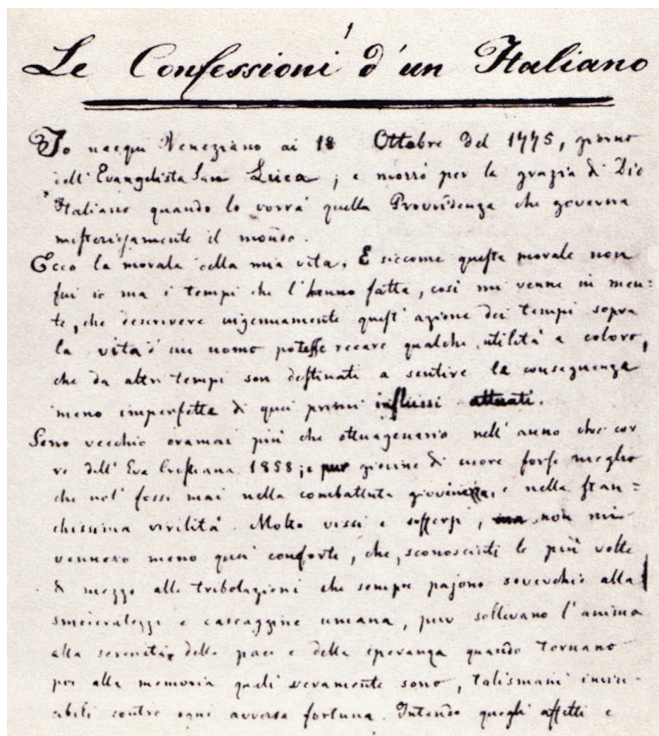 1
Le Confessioni d'un Italiano
Io nacqui Veneziano ai 18 Ottobre del 1775, giorno
dell'Evangelista San Luca; e morrò per la grazia di Dio
Italiano quando lo vorrà quella Provvidenza che governa
misteriosamente il mondo.
Ecco la morale della mia vita. E siccome questa morale non
fui io ma i tempi che l'hanno fatta, così mi venne in men-
te, che descrivere ingenuamente quest'azione dei tempi sopra
la vita d'un uomo potesse recare qualche utilità a coloro,
che da altri tempi son destinati a sentire la conseguenza
meno imperfetta di quei primi influssi attuati.
Sono vecchio oramai più che ottuagenario nell'anno che cor
re dell'Era Cristiana 1858; e pur giovine di cuore forse meglio
che nol fossi mai nella combattuta gioventù, e nella stan=
chissima virilità. Molto vissi e soffersi, ma non mi
vennero meno quei conforti, che, sconosciuti le più volte
di mezzo alle tribolazioni che sempre pajono soverchie alla
smoderatezza e cascaggine umana, pur sollevano l'anima
alla serenità della pace e della speranza quando tornano
poi alla memoria quali veramente sono, talismani invin-
cibili contro ogni avversa fortuna. Intendo quegli affetti e